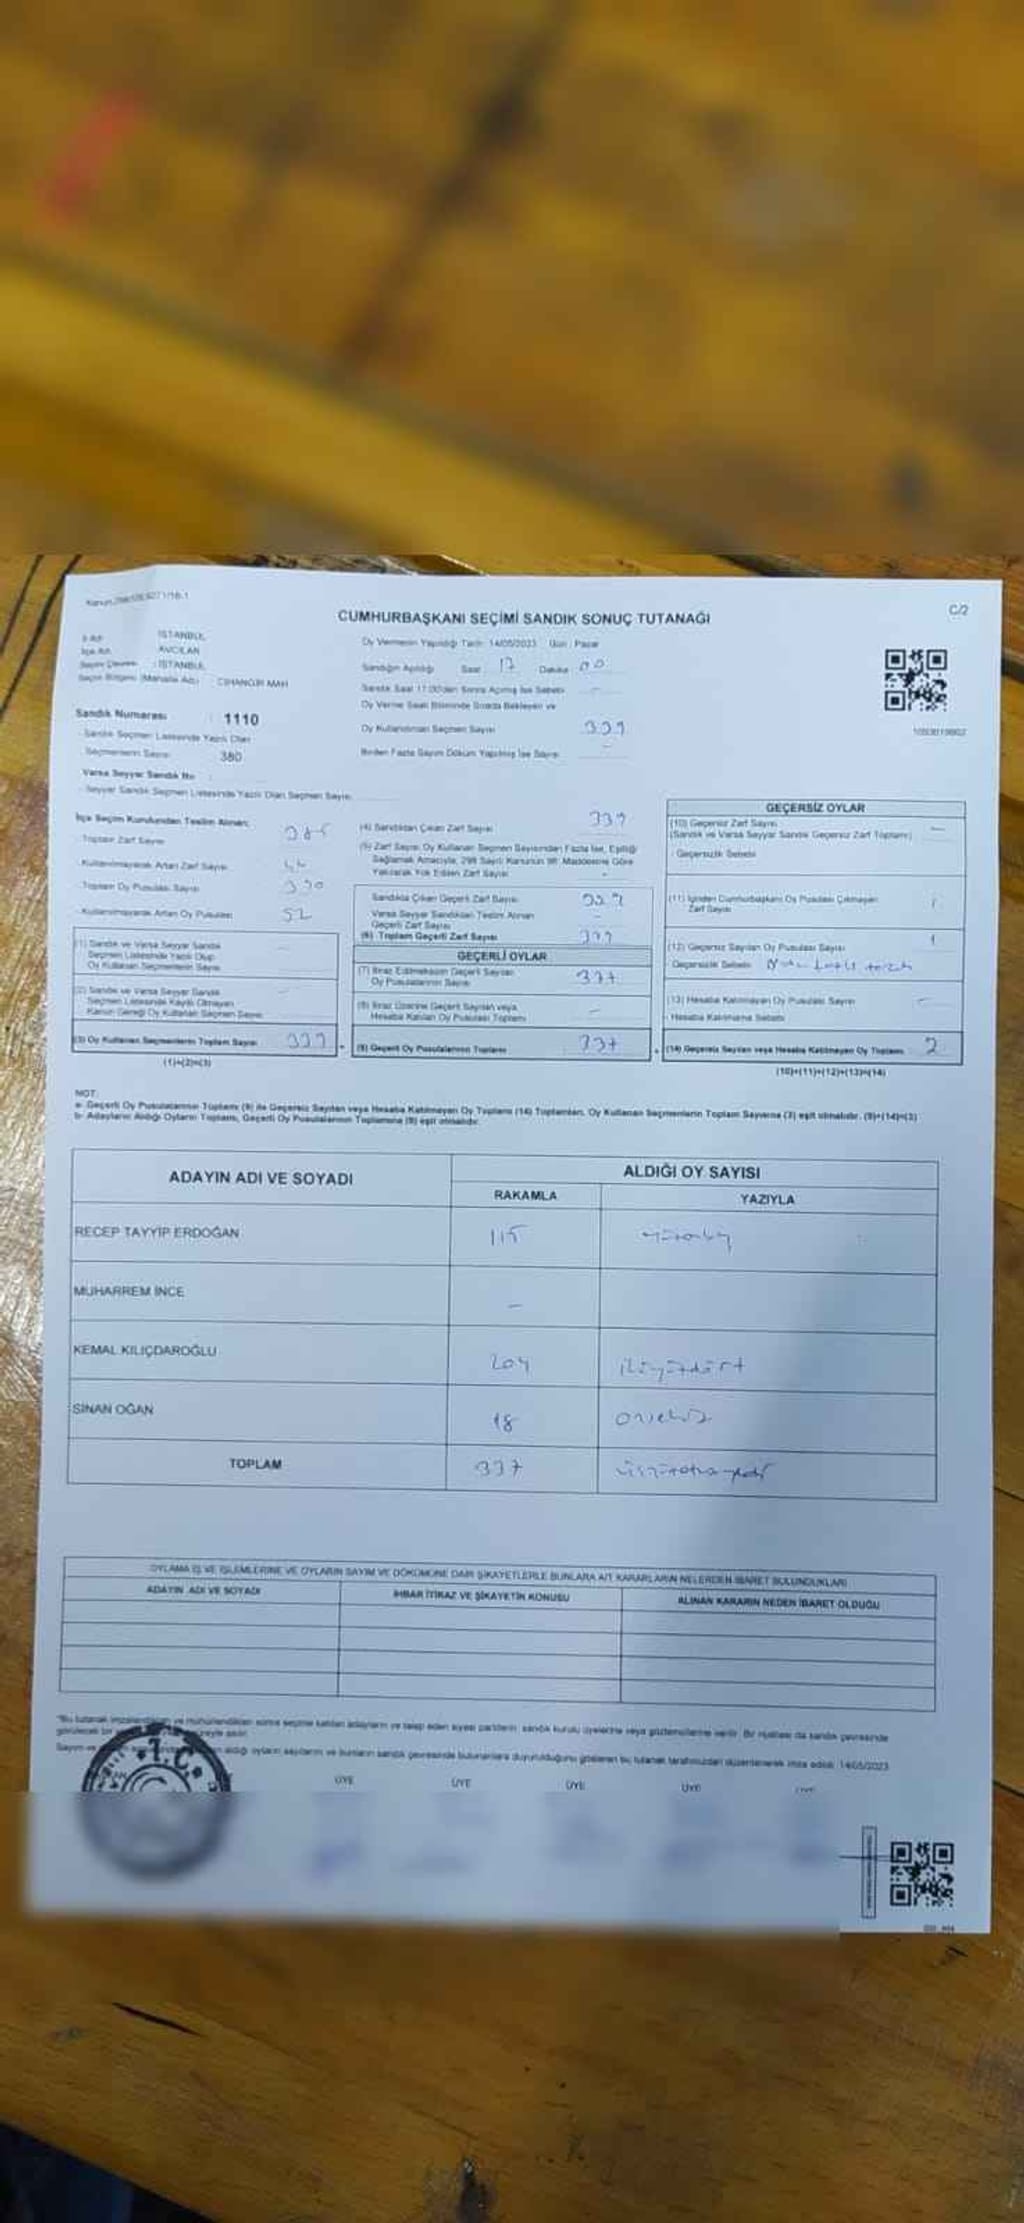 CUMHURBAŞKANI SEÇİMİ SANDIK SONUÇ TUTANAĞI
C/2
İl Adı : İSTANBUL
İlçe Adı : AVCILAR
Seçim Çevresi : İSTANBUL
Seçim Bölgesi (Mahalle Adı) : CİHANGİR MAH
Sandık Numarası : 1110
Sandık Seçmen Listesinde Yazılı Olan
Seçmenlerin Sayısı : 380
Varsa Seyyar Sandık No :
Seyyar Sandık Seçmen Listesinde Yazılı Olan Seçmen Sayısı
Oy Vermenin Yapıldığı Tarih: 14/05/2023 Gün : Pazar
Sandığın Açıldığı Saat 17 Dakika 00
Sandık Saat 17:00'den Sonra Açılmış İse Sebebi -
Oy Verme Saati Bitiminde Sırada Bekleyen ve
Oy Kullandırılan Seçmen Sayısı 339
Birden Fazla Sayım Döküm Yapılmış İse Sayısı -
İlçe Seçim Kurulundan Teslim Alınan;
Toplam Zarf Sayısı
Kullanılmayarak Artan Zarf Sayısı
Toplam Oy Pusulası Sayısı 390
Kullanılmayarak Artan Oy Pusulası 52
(1) Sandık ve Varsa Seyyar Sandık
Seçmen Listesinde Yazılı Olup
Oy Kullanan Seçmenlerin Sayısı
(2) Sandık ve Varsa Seyyar Sandık
Seçmen Listesinde Kayıtlı Olmayan
Kanun Gereği Oy Kullanan Seçmen Sayısı
(3) Oy Kullanan Seçmenlerin Toplam Sayısı 339
(1)+(2)=(3)
(4) Sandıktan Çıkan Zarf Sayısı 339
(5) Zarf Sayısı Oy Kullanan Seçmen Sayısından Fazla İse, Eşitliği
Sağlamak Amacıyla, 298 Sayılı Kanunun 98. Maddesine Göre
Yakılarak Yok Edilen Zarf Sayısı
Sandıkta Çıkan Geçerli Zarf Sayısı 339
Varsa Seyyar Sandıktan Teslim Alınan
Geçerli Zarf Sayısı
(6) Toplam Geçerli Zarf Sayısı 339
GEÇERLİ OYLAR
(7) İtiraz Edilmeksizin Geçerli Sayılan
Oy Pusulalarının Sayısı 337
(8) İtiraz Üzerine Geçerli Sayılan veya
Hesaba Katılan Oy Pusulası Toplamı -
(9) Geçerli Oy Pusulalarının Toplamı 337
GEÇERSİZ OYLAR
(10) Geçersiz Zarf Sayısı
(Sandık ve Varsa Seyyar Sandık Geçersiz Zarf Toplamı) -
Geçersizlik Sebebi
(11) İçinden Cumhurbaşkanı Oy Pusulası Çıkmayan
Zarf Sayısı 1
(12) Geçersiz Sayılan Oy Pusulası Sayısı 1
Geçersizlik Sebebi
(13) Hesaba Katılmayan Oy Pusulası Sayısı -
Hesaba Katılmama Sebebi
(14) Geçersiz Sayılan veya Hesaba Katılmayan Oy Toplamı 2
(10)+(11)+(12)+(13)=(14)
NOT:
a- Geçerli Oy Pusulalarının Toplamı (9) ile Geçersiz Sayılan veya Hesaba Katılmayan Oy Toplamı (14) Toplamları, Oy Kullanan Seçmenlerin Toplam Sayısına (3) eşit olmalıdır. (9)+(14)=(3)
b- Adayların Aldığı Oyların Toplamı, Geçerli Oy Pusulalarının Toplamına (9) eşit olmalıdır.
ADAYIN ADI VE SOYADI
ALDIĞI OY SAYISI
RAKAMLA YAZIYLA
RECEP TAYYİP ERDOĞAN 115
MUHARREM İNCE -
KEMAL KILIÇDAROĞLU 204 ikiyüzdört
SİNAN OĞAN 18 onsekiz
TOPLAM 337 üçyüzotuzyedi
OYLAMA İŞ VE İŞLEMLERİNE VE OYLARIN SAYIM VE DÖKÜMÜNE DAİR ŞİKAYETLERLE BUNLARA AİT KARARLARIN NELERDEN İBARET BULUNDUKLARI
ADAYIN ADI VE SOYADI İHBAR İTİRAZ VE ŞİKAYETİN KONUSU ALINAN KARARIN NEDEN İBARET OLDUĞU
"Bu tutanak imzalandıktan ve mühürlendikten sonra seçime katılan adayların ve talep eden siyasi partilerin sandık kurulu üyelerine veya gözlemcilerine verilir. Bir nüshası da sandık çevresinde
görülecek bir
Sayım ve aldığı oyların sayılarını ve bunların sandık çevresinde bulunanlara duyurulduğunu gösteren bu tutanak tarafımızdan düzenlenerek imza edildi. 14/05/2023
T.C.
ÜYE ÜYE ÜYE ÜYE